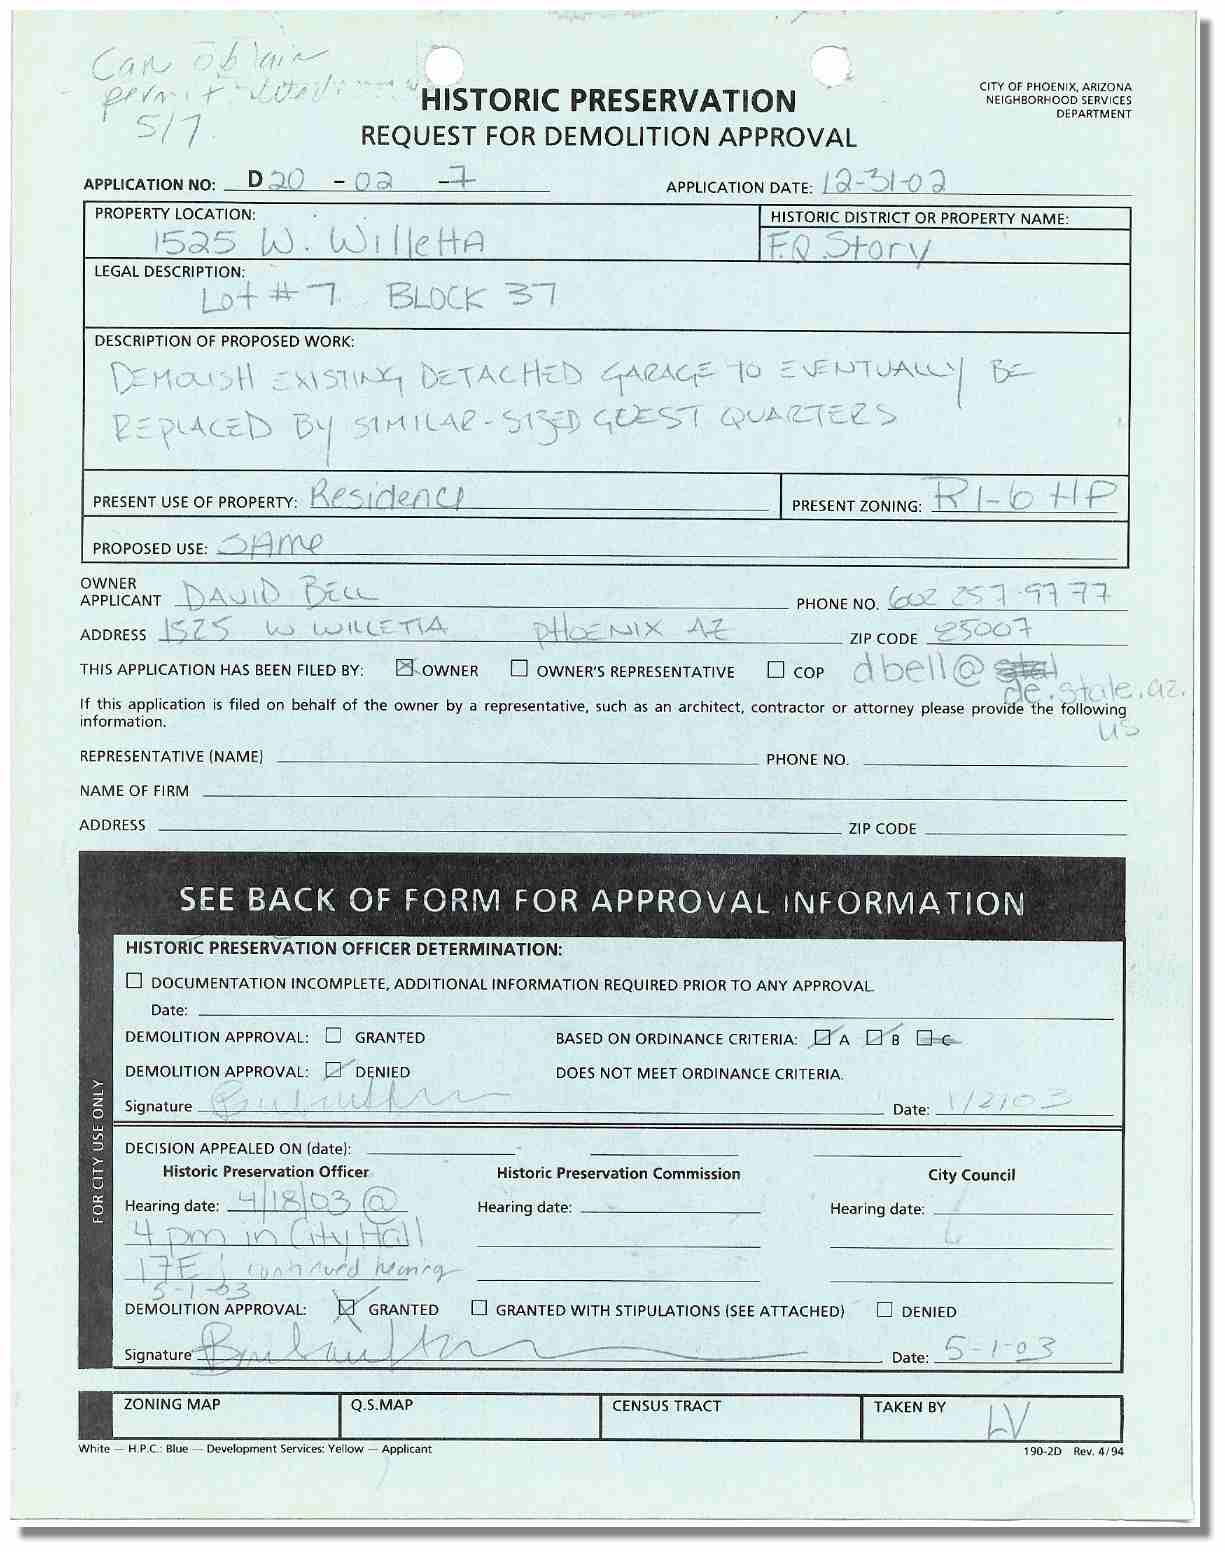 Can obtain
permit
5/7
HISTORIC PRESERVATION
REQUEST FOR DEMOLITION APPROVAL
CITY OF PHOENIX, ARIZONA
NEIGHBORHOOD SERVICES
DEPARTMENT
APPLICATION NO: D 20 - 02 - 7 APPLICATION DATE: 12-31-02
PROPERTY LOCATION: HISTORIC DISTRICT OR PROPERTY NAME:
1525 W. WillettA F.Q. Story
LEGAL DESCRIPTION:
Lot #7 BLOCK 37
DESCRIPTION OF PROPOSED WORK:
DEMOLISH EXISTING DETACHED GARAGE TO EVENTUALLY BE
REPLACED BY SIMILAR-SIZED GUEST QUARTERS
PRESENT USE OF PROPERTY: Residence PRESENT ZONING: R1-6 HP
PROPOSED USE: SAme
OWNER
APPLICANT DAVID BELL PHONE NO. 602 257-9777
ADDRESS 1525 W WILLETTA PHOENIX AZ ZIP CODE 85007
THIS APPLICATION HAS BEEN FILED BY: OWNER OWNER'S REPRESENTATIVE COP dbell@
de.state.az.
us
If this application is filed on behalf of the owner by a representative, such as an architect, contractor or attorney please provide the following
information.
REPRESENTATIVE (NAME) PHONE NO.
NAME OF FIRM
ADDRESS ZIP CODE
SEE BACK OF FORM FOR APPROVAL INFORMATION
HISTORIC PRESERVATION OFFICER DETERMINATION:
DOCUMENTATION INCOMPLETE, ADDITIONAL INFORMATION REQUIRED PRIOR TO ANY APPROVAL.
Date:
DEMOLITION APPROVAL: GRANTED BASED ON ORDINANCE CRITERIA: A B C
DEMOLITION APPROVAL: DENIED DOES NOT MEET ORDINANCE CRITERIA.
Signature Date: 1/2/03
FOR CITY USE ONLY
DECISION APPEALED ON (date):
Historic Preservation Officer Historic Preservation Commission City Council
Hearing date: 4/18/03 @ Hearing date: Hearing date:
4 pm in City Hall
17E continued hearing
5-1-03
DEMOLITION APPROVAL: GRANTED GRANTED WITH STIPULATIONS (SEE ATTACHED) DENIED
Signature Date: 5-1-03
ZONING MAP Q.S.MAP CENSUS TRACT TAKEN BY LV
White — H.P.C.: Blue — Development Services: Yellow — Applicant 190-2D Rev. 4/94